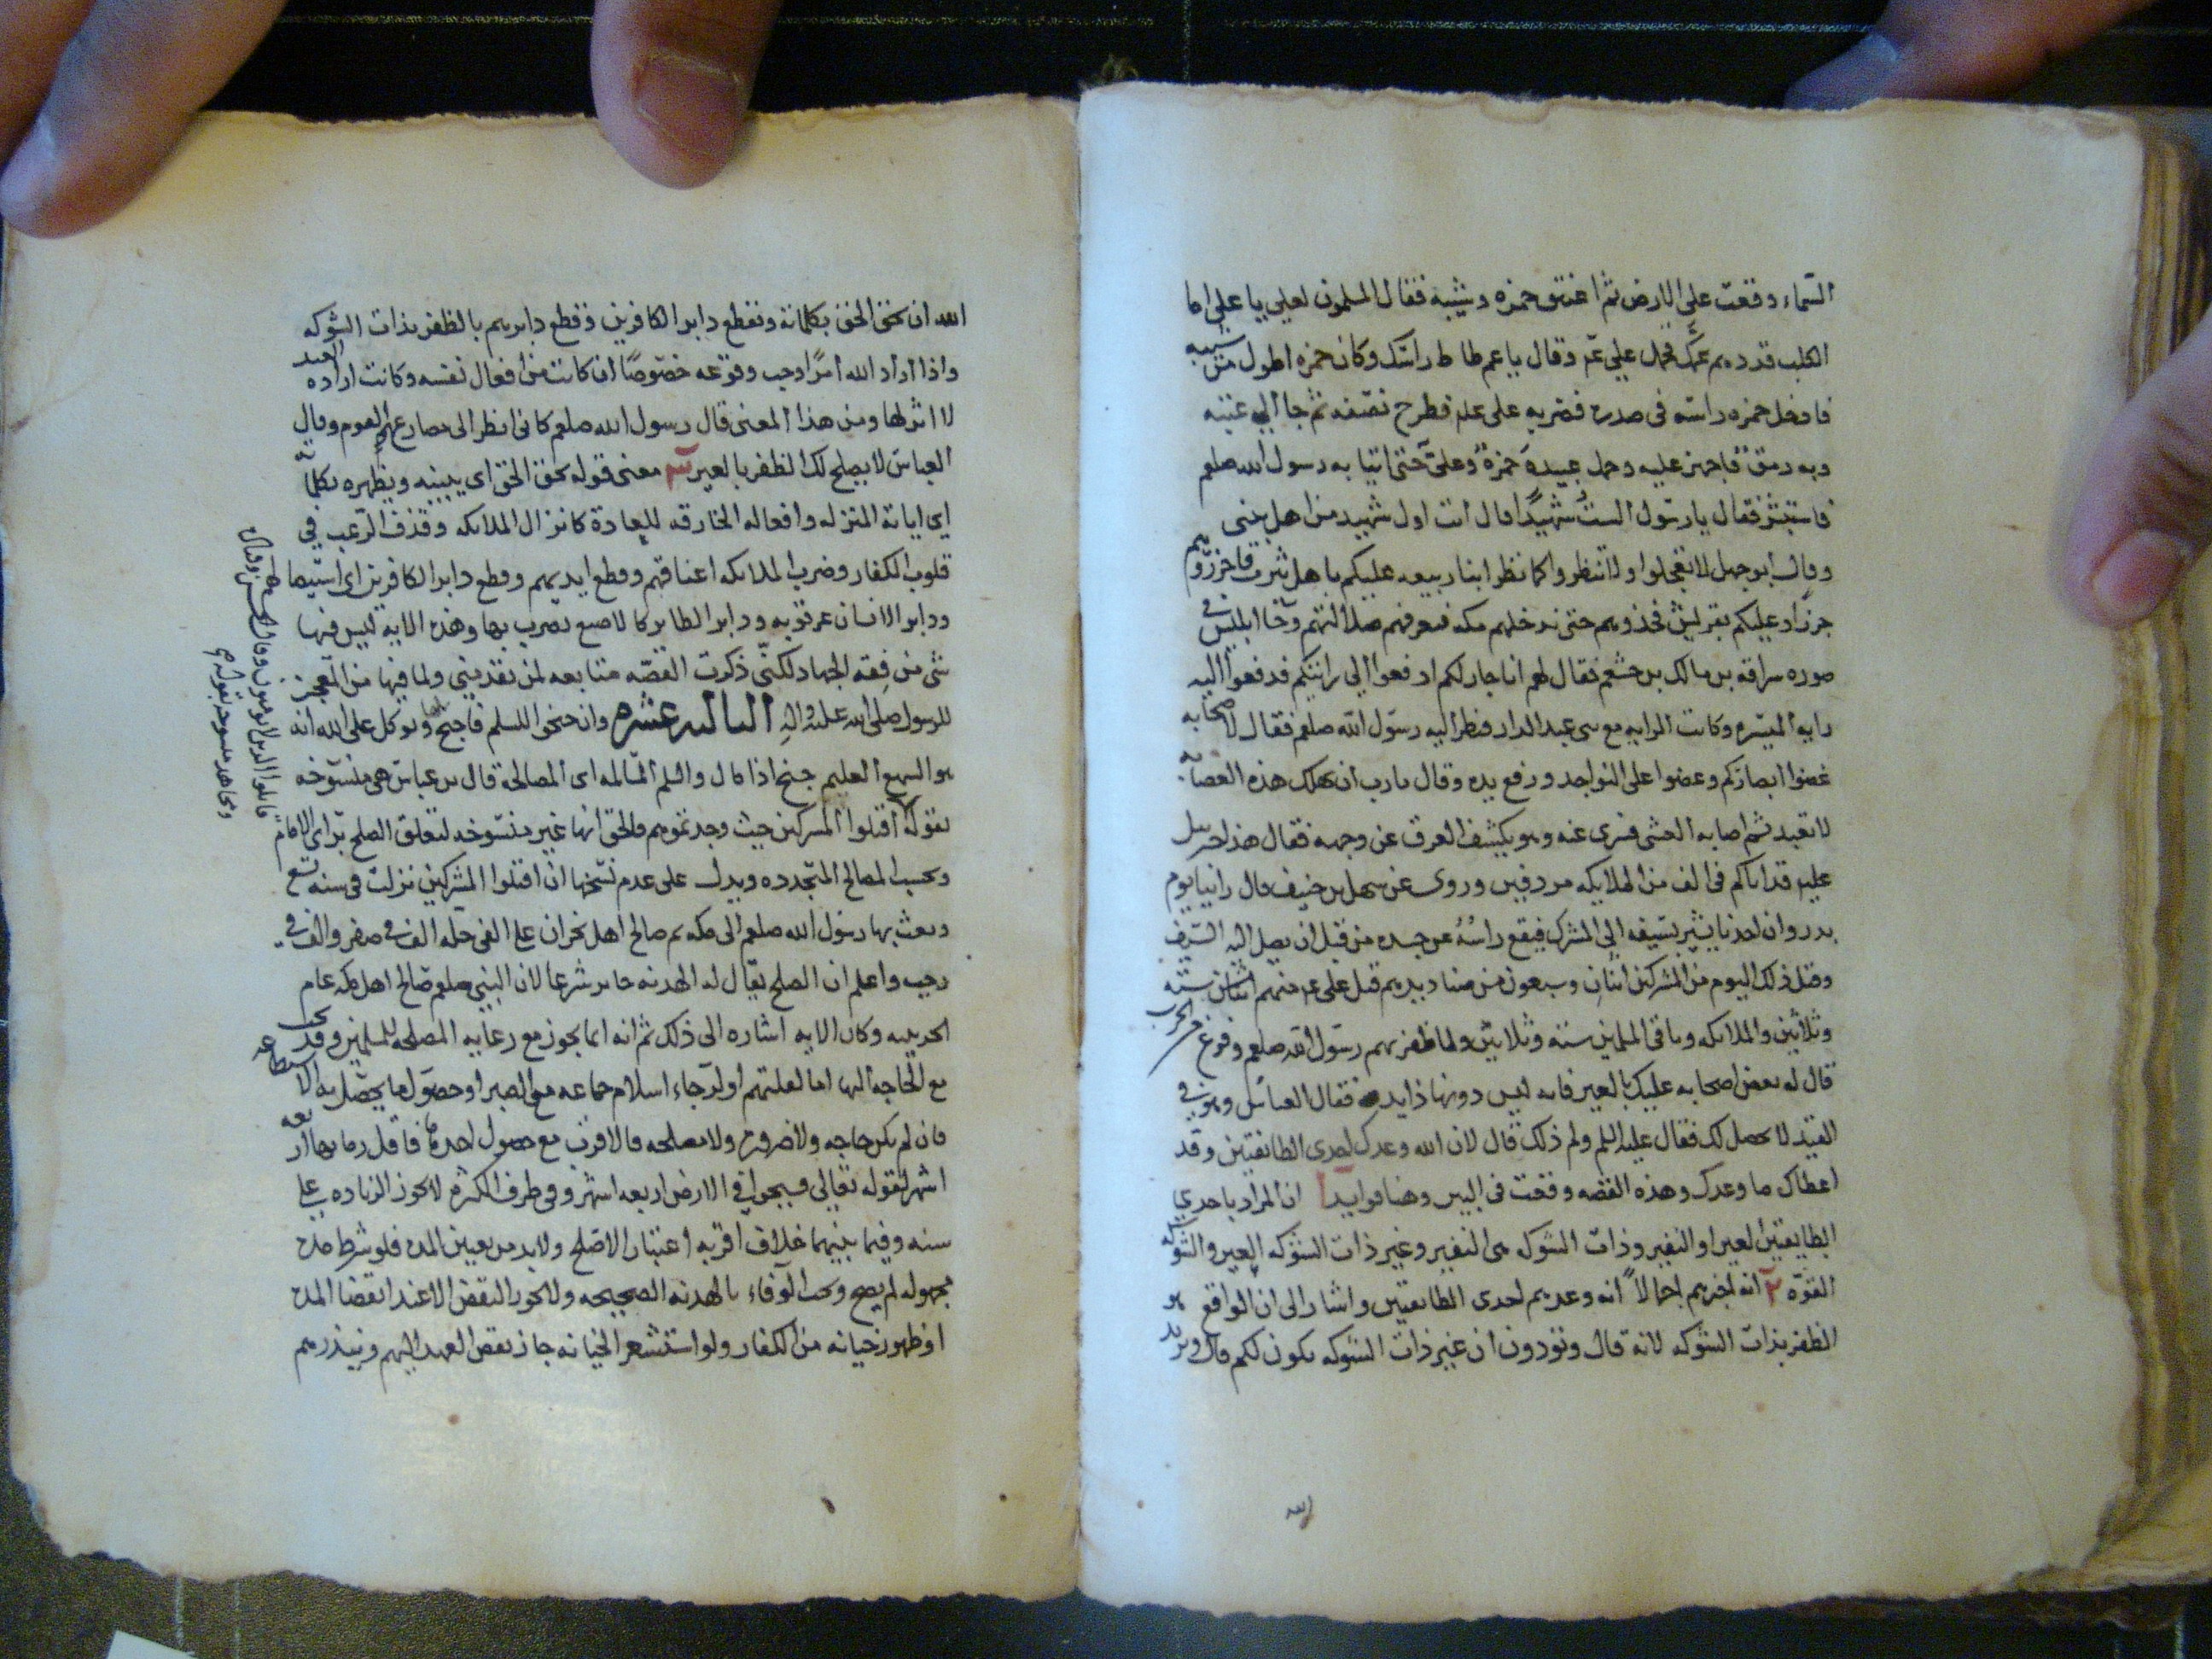 السماء وقعت على الارض ثم اعتنق حمزه وشيبه فقال المسلمون لعلى يا على اما
الكلب قد دهم عمك فحمل على عم وقال يا عم طاطا راسك وكان حمزه اطول من شيبه
فادخل حمزه راسه فى صدره فضربه على علم فطرح نصفه ثم جا الى عتبه
وبه رمق فاجهز عليه وحمل عبيدة حمزة وعلى حتى اتيا به رسول الله صلعم
فاستبشر فقال يا رسول الست شهيدا قال انت اول شهيد من اهل بيتى
وقال ابو جهل لا تعجلوا ولا تنظروا كما نظر ابنا ربيعه عليكم باهل يثرب فاجزروهم
جزرا وعليكم بقريش فخذوهم حتى ندخلهم مكه فنعرفهم ضلالتهم وجا ابليس فى
صوره سراقه بن مالك بن جشعم فقال لهم انا جار لكم ادفعوا الى رايتكم فدفعوا اليه
رايه الميسره وكانت الرايه مع بنى عبد الدار فنظر اليه رسول الله صلعم فقال لاصحابه
غضوا ابصاركم وعضوا على النواجد ورفع يده وقال يا رب ان تهلك هذه العصابه
لا تعبد ثم اصابه الغشى فسرى عنه وهو يكشف العرق عن وجهه فقال هذا جبرييل
عليه قد اتاكم فى الف من الملايكه مردفين وروى عن سهل بن حنيف قال راينا يوم
بدر وان احدنا يشير بسيفه الى المشرك فيقع راسه عن جسده من قبل ان يصل اليه السيف
وقتل ذلك اليوم من المشركين اثنان وسبعون من صناديدهم قتل على عم منهم اثنان سته
وثلاثين والملائكه وباقى المسلمين سته وثلاثين ولما ظفر بهم رسول الله صلعم وفرغ من الحرب
قال له بعض اصحابه عليك بالعير فانه ليس دونها ذايد فقال العباس وهو فى
القيد لا يحصل لك فقال عليه السلم ولم ذلك قال لان الله وعدك احدى الطائفتين وقد
اعطاك ما وعدك وهذه القصه وقعت فى البين وهنا فوايد ا ان المراد باحدى
الطايفتين العير او النفير وذات الشوكه هى النفير وغير ذات الشوكه العير والشوكه
القوه ٢ انه اخبرهم اجمالا انه وعدهم احدى الطايفتين واشار الى ان الواقع هو
الظفر بذات الشوكه لانه قال وتودون ان غير ذات الشوكه تكون لكم قال ويريد
الله
الله ان يحق الحق بكلماته ويقطع دابر الكافرين وقطع دابرهم بالظفر بذات الشوكه
واذا اراد الله امرا وجب وقوعه خصوصا ان كانت من افعال نفسه وكانت اراده العبد
لا اثر لها ومن هذا المعنى قال رسول الله صلعم كانى انظر الى مصارع القوم وقال
العباس لا يصلح لك الظفر بالعير معنى قوله يحق الحق اى يبينه ويظهره بكلماته
اى اياته المنزله وافعاله الخارقه للعادة كانزال الملائكه وقذف الرعب فى
قلوب الكفار وضرب الملائكه اعناقهم وقطع ايديهم وقطع دابر الكافرين اى استيصالهم
ودابر الانسان عرقوبه ودابر الطاير كالاصبع يضرب بها وهذه الايه ليس فيها
شى من فقه الجهاد لكنى ذكرت القصه متابعه لمن تقدمنى ولما فيها من المعجز
للرسول صلى الله عليه واله الثالثه عشره وان جنحوا للسلم فاجنح لها وتوكل على الله انه
هو السميع العليم جنح اذا مال والسلم المسالمه اى المصالحه قال بن عباس هى منسوخه
بقوله اقتلوا المشركين حيث وجدتموهم والحق انها غير منسوخه لتعلق الصلح براى الامام
وبحسب المصالح المتجدده ويدل على عدم نسخها ان اقتلوا المشركين نزلت فى سنه تسع
وبعث بها رسول الله صلعم الى مكه ثم صالح اهل نجران على الفى حله الف فى صفر والف فى
رجب واعلم ان الصلح يقال له الهدنه جايز شرعا لان النبى صلعم صالح اهل مكه عام
الحديبيه وكان الايه اشاره الى ذلك ثم انه انما يجوز مع رعايه المصلحه للمسلمين وقد يجب
مع الحاجه اليها اما لقلتهم او لرجاء اسلام جماعه مع الصبر او حصول ما يحصل به الاستطاعه
فان لم يكن حاجه ولا ضروره ولا مصلحه فالاقرب مع حصول احدها فاقل زمانها اربعه
اشهر لقوله تعالى فسيحوا فى الارض اربعه اشهر وفى طرف الكثره لا يجوز الزياده على
سنه وفيما بينهما خلاف اقربه اعتبار الاصلح ولا بد من تعيين المده فلو شرط مده
مجهوله لم يصح ويجب الوفاء بالهدنه الصحيحه ولا يجوز النقض الا عند انقضا المده
او ظهور خيانه من الكفار ولو استشعر الخيانه جاز نقض العهد اليهم وينذرهم
قاتلوا الذين لا يومنون وقال الحسن وقتاده
ومجاهد منسوخه بقوله